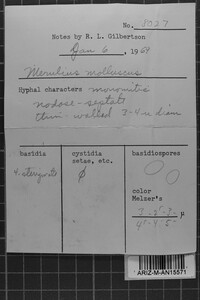 No. 8027
Notes by R. L. Gilbertson
Jan 6, 1969
Merulius molluscus
Hyphal characters monomitic
nodose-septate
thin-walled 3-4 u diam
basidia
cystidia
setae, etc.
basidiospores
4-sterigmate
Ø
color
Melzer's
µ
ARIZ-M-AN15571